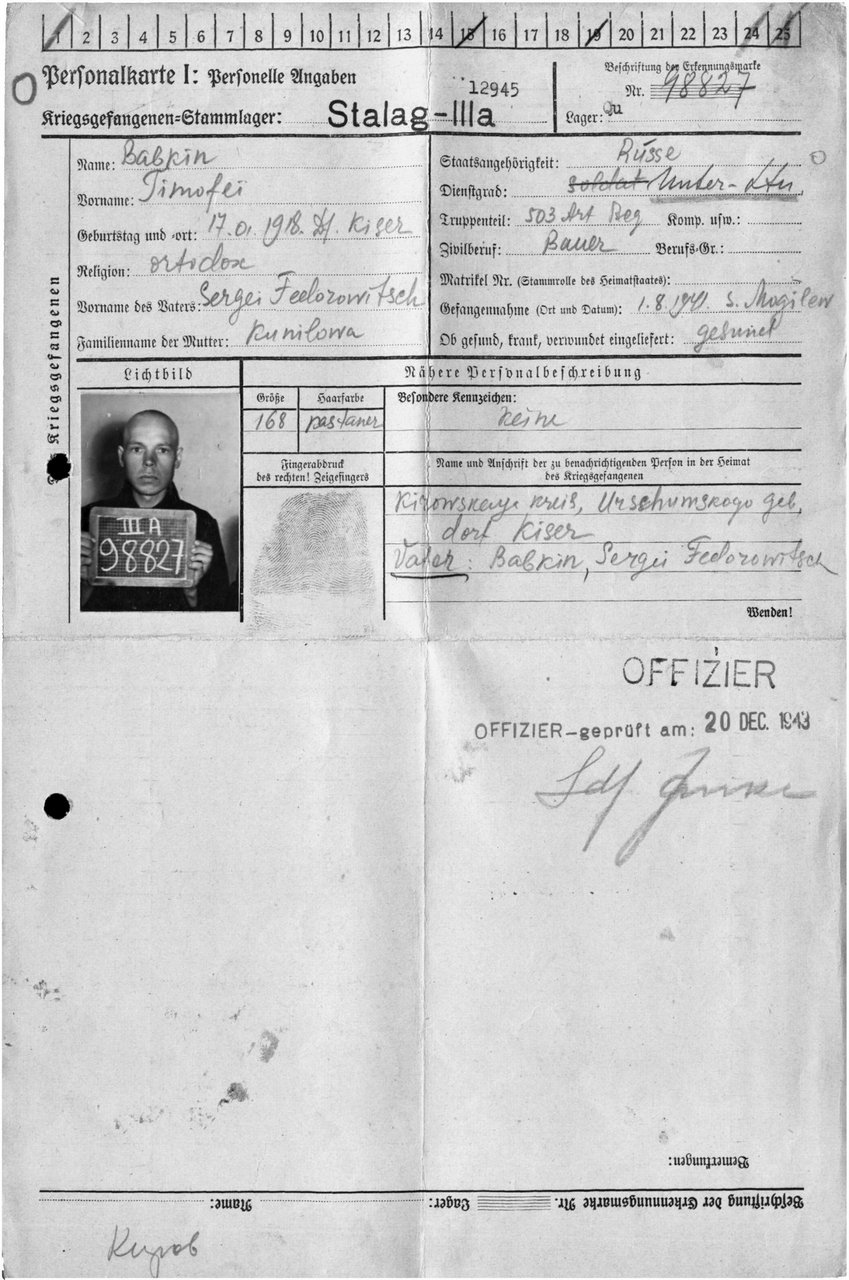 1 2 3 4 5 6 7 8 9 10 11 12 13 14 15 16 17 18 19 20 21 22 23 24 25
Personalkarte I: Personelle Angaben
12945
Beschriftung der Erkennungsmarke
Nr. 98827
Kriegsgefangenen-Stammlager: Stalag-IIIa
Lager:
des Kriegsgefangenen
Name: Babkin
Vorname: Timofei
Geburtstag und -ort: 17.01.1918. Df. Kiser
Religion: ortidox
Vorname des Vaters: Sergei Fedorowitsch
Familienname der Mutter: Kunilowa
Staatsangehörigkeit: Russe
Dienstgrad: soldat Unter-Ltn
Truppenteil: 503 Art Reg Komp. usw.:
Zivilberuf: Bauer Berufs-Gr.:
Matrikel Nr. (Stammrolle des Heimatstaates):
Gefangennahme (Ort und Datum): 1.8.1941. s. Mogilew
Ob gesund, krank, verwundet eingeliefert: gesund
Lichtbild
III A
98827
Nähere Personalbeschreibung
Größe
168
Haarfarbe
kastaner
Besondere Kennzeichen:
keine
Fingerabdruck
des rechten! Zeigefingers
Name und Anschrift der zu benachrichtigenden Person in der Heimat
des Kriegsgefangenen
Kirowskaja kreis, Urschumskogo geb,
dorf Kiser
Vater: Babkin, Sergei Fedorowitsch
Wenden!
OFFIZIER
OFFIZIER-geprüft am: 20 DEC. 1943
Bemerkungen:
Beschriftung der Erkennungsmarke Nr. Lager: Name:
Киров